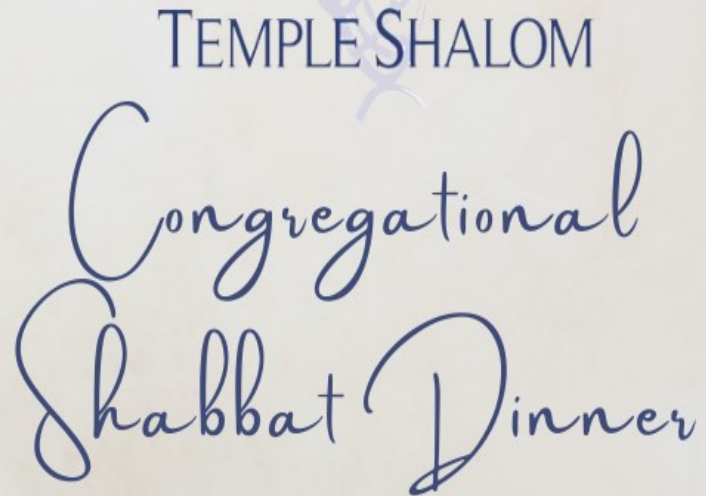 TEMPLE SHALOM
Congregational
Shabbat Dinner